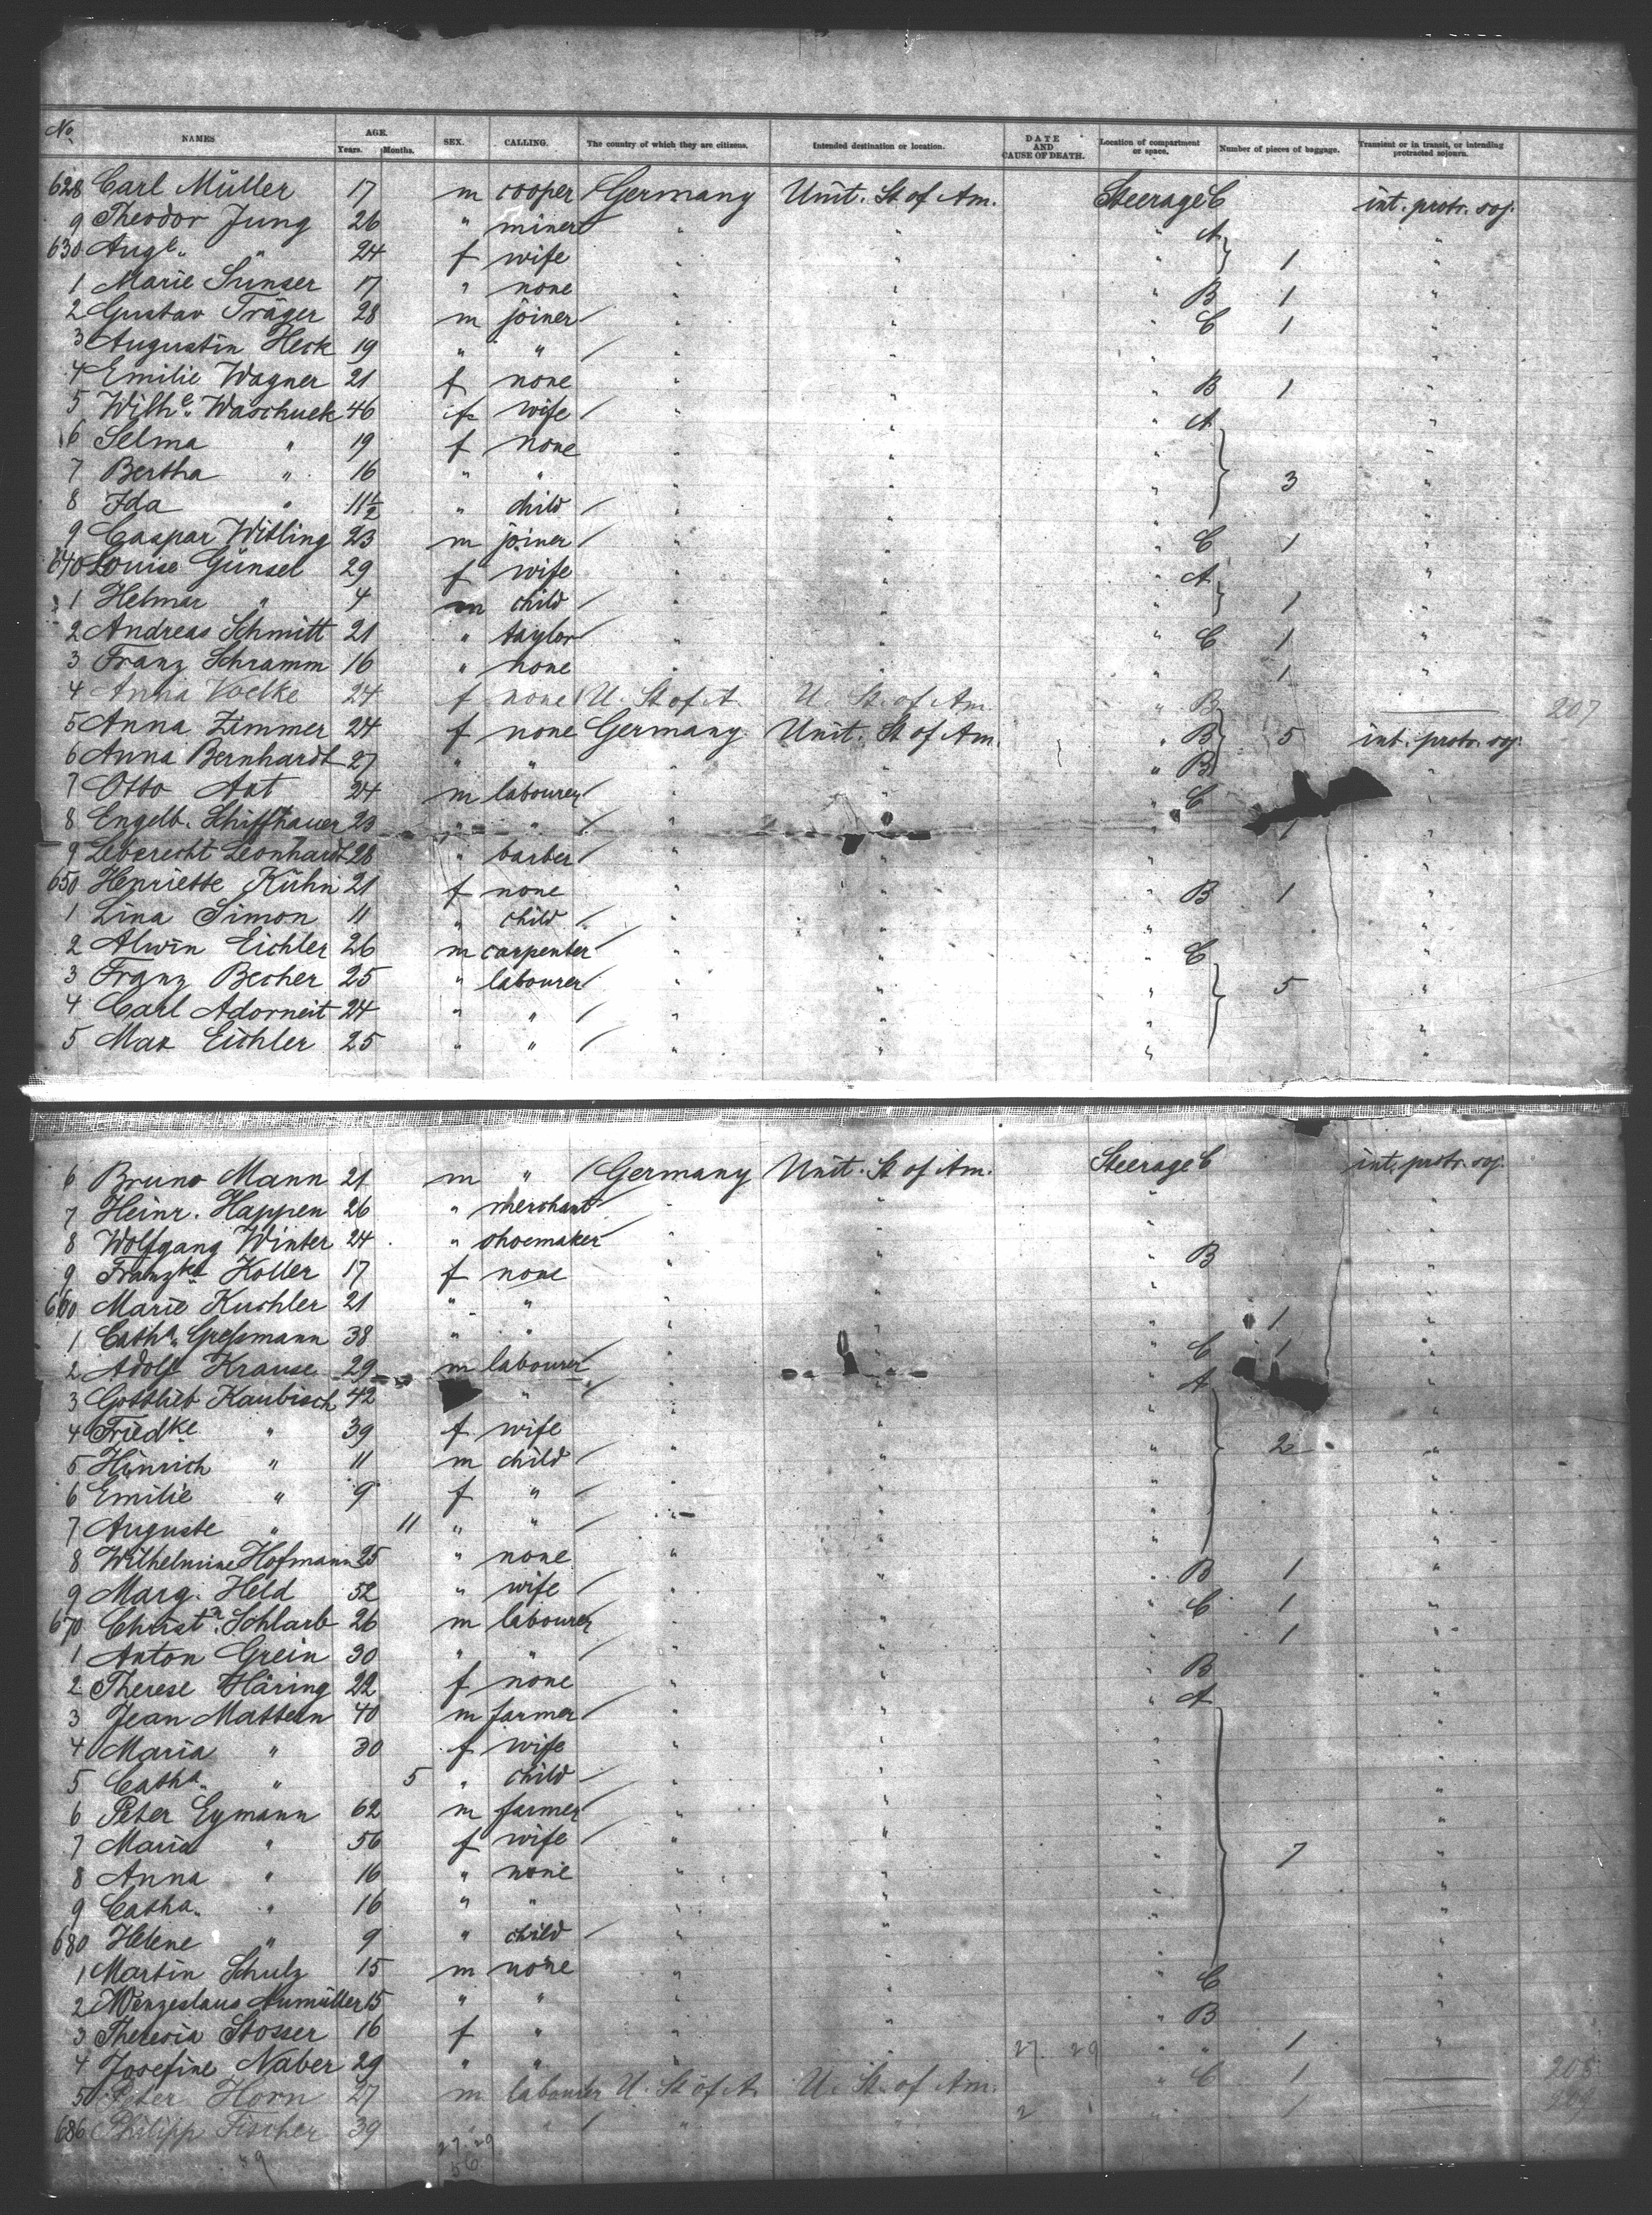 No NAMES AGE. Years. Months. SEX. CALLING. The country of which they are citizens. Intended destination or location. DATE AND CAUSE OF DEATH. Location of compartment or space. Number of pieces of baggage. Transient or in transit, or intending protracted sojourn.
628 Carl Müller 17 m cooper Germany Unit. St of Am. Steerage C int. protr. soj.
9 Theodor Jung 26 " miner " " " A "
630 Auge. " 24 f wife " " " 1 "
1 Marie Sunser 17 " none " " " B 1 "
2 Gustav Träger 28 m joiner " " " C 1 "
3 Augustin Heck 19 " " " " " "
4 Emilie Wagner 21 f none " " " B 1 "
5 Wilhe. Waschuek 46 f wife " " " A "
6 Selma " 19 f none " " " "
7 Bertha " 16 " " " " " 3 "
8 Ida " 11½ " child " " " "
9 Caspar Witling 23 m joiner " " " C 1 "
640 Louise Günsel 29 f wife " " " A "
1 Helmar " 4 m child " " " 1 "
2 Andreas Schmitt 21 " taylor " " " C 1 "
3 Franz Schramm 16 " none " " " 1 "
4 Anna Voelke 24 f none U. St of A. U. St. of Am. " B 207
5 Anna Zimmer 24 f none Germany Unit. St of Am. " B 5 int. protr. soj.
6 Anna Bernhardt 27 " " " " " B "
7 Otto Ant 24 m labourer " " " C
8 Engelb. Schiffhauer 23 " " " " " 1 "
9 Lebrecht Leonhardt 28 " barber " " " "
650 Henriette Kühn 21 f none " " " B 1 "
1 Lina Simon 11 " child " " " "
2 Alwin Eichler 26 m carpenter " " " C "
3 Franz Becher 25 " labourer " " " 5 "
4 Carl Adorneit 24 " " " " " "
5 Max Eichler 25 " " " " " "
6 Bruno Mann 21 m " Germany Unit. St of Am. Steerage C int. protr. soj.
7 Heinr. Happen 26 " merchant " " " "
8 Wolfgang Winter 24 " shoemaker " " " "
9 Franzka Koller 17 f none " " " B "
660 Marie Kuchler 21 " " " " " "
1 Catha. Greßmann 38 " " " " " 1 "
2 Adolf Krause 29 m labourer " " " C 1 "
3 Gottlieb Kaubisch 42 " " " A "
4 Friedke " 39 f wife " " " "
5 Hinrich " 11 m child " " " 2 "
6 Emilie " 9 f " " " " "
7 Auguste " 11 " " " " " "
8 Wilhelmine Hofmann 25 " none " " " B 1 "
9 Marg. Held 52 " wife " " " C 1 "
670 Christn. Schlarb 26 m labourer " " " 1 "
1 Anton Grein 30 " " " " " "
2 Therese Häring 22 f none " " " B "
3 Jean Mattern 40 m farmer " " " A "
4 Maria " 30 f wife " " " "
5 Catha. " 5 " child " " " "
6 Peter Eymann 62 m farmer " " " "
7 Maria " 56 f wife " " " 7 "
8 Anna " 16 " none " " " "
9 Catha. " 16 " " " " " "
680 Helene " 9 " child " " " "
1 Martin Schulz 15 m none " " " C "
2 Wenzeslaus Aumüller 15 " " " " " "
3 Theresia Stosser 16 f " " " " B "
4 Josefine Naber 29 " " " " 27 29 " " 1 "
5 Peter Horn 27 m labourer U. St of A. U. St. of Am. " C 1 208
686 Philipp Fischer 39 " " " " 2 1 " 1 209
27 29
56